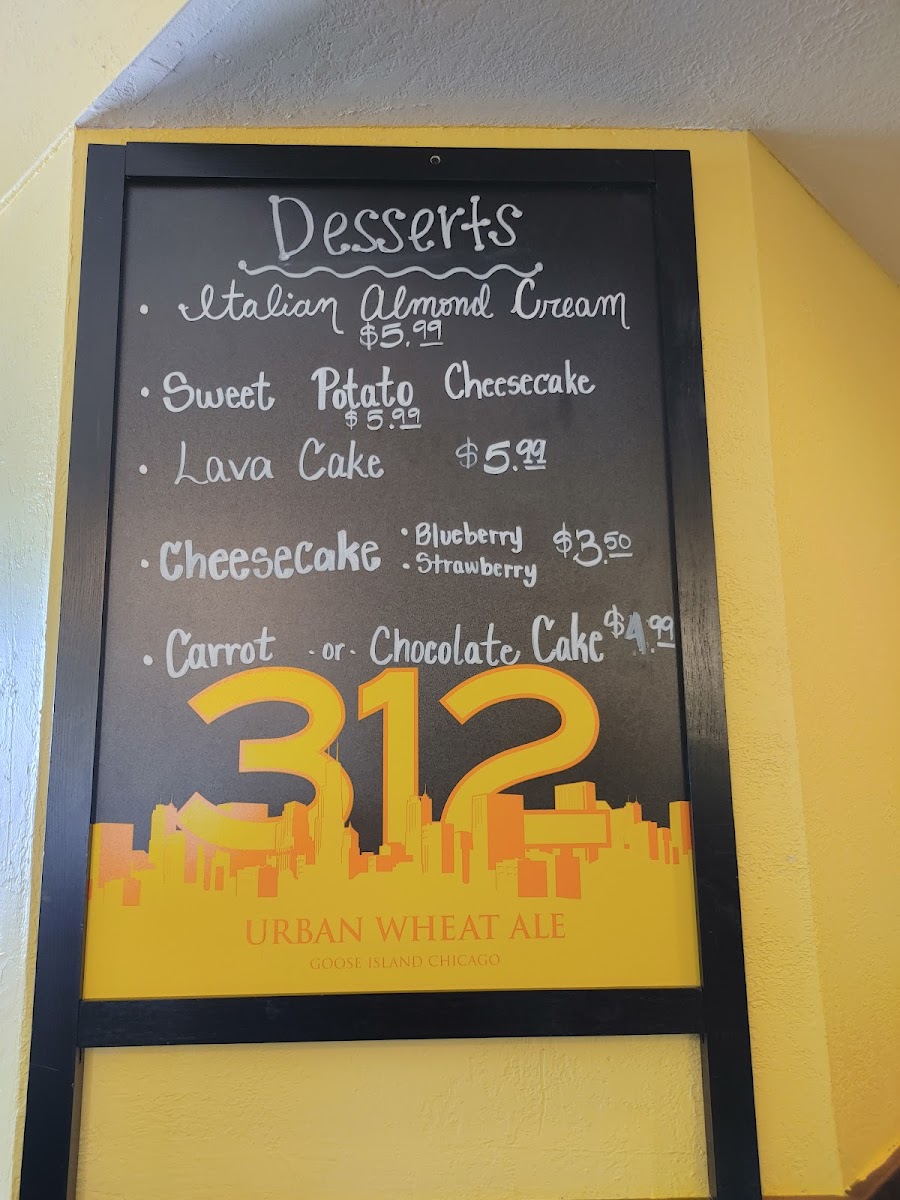 Desserts
• Italian Almond Cream
$5.99
• Sweet Potato Cheesecake
$5.99
• Lava Cake $5.99
• Cheesecake • Blueberry $3.50
• Strawberry
• Carrot -or- Chocolate Cake $4.99
312
URBAN WHEAT ALE
GOOSE ISLAND CHICAGO